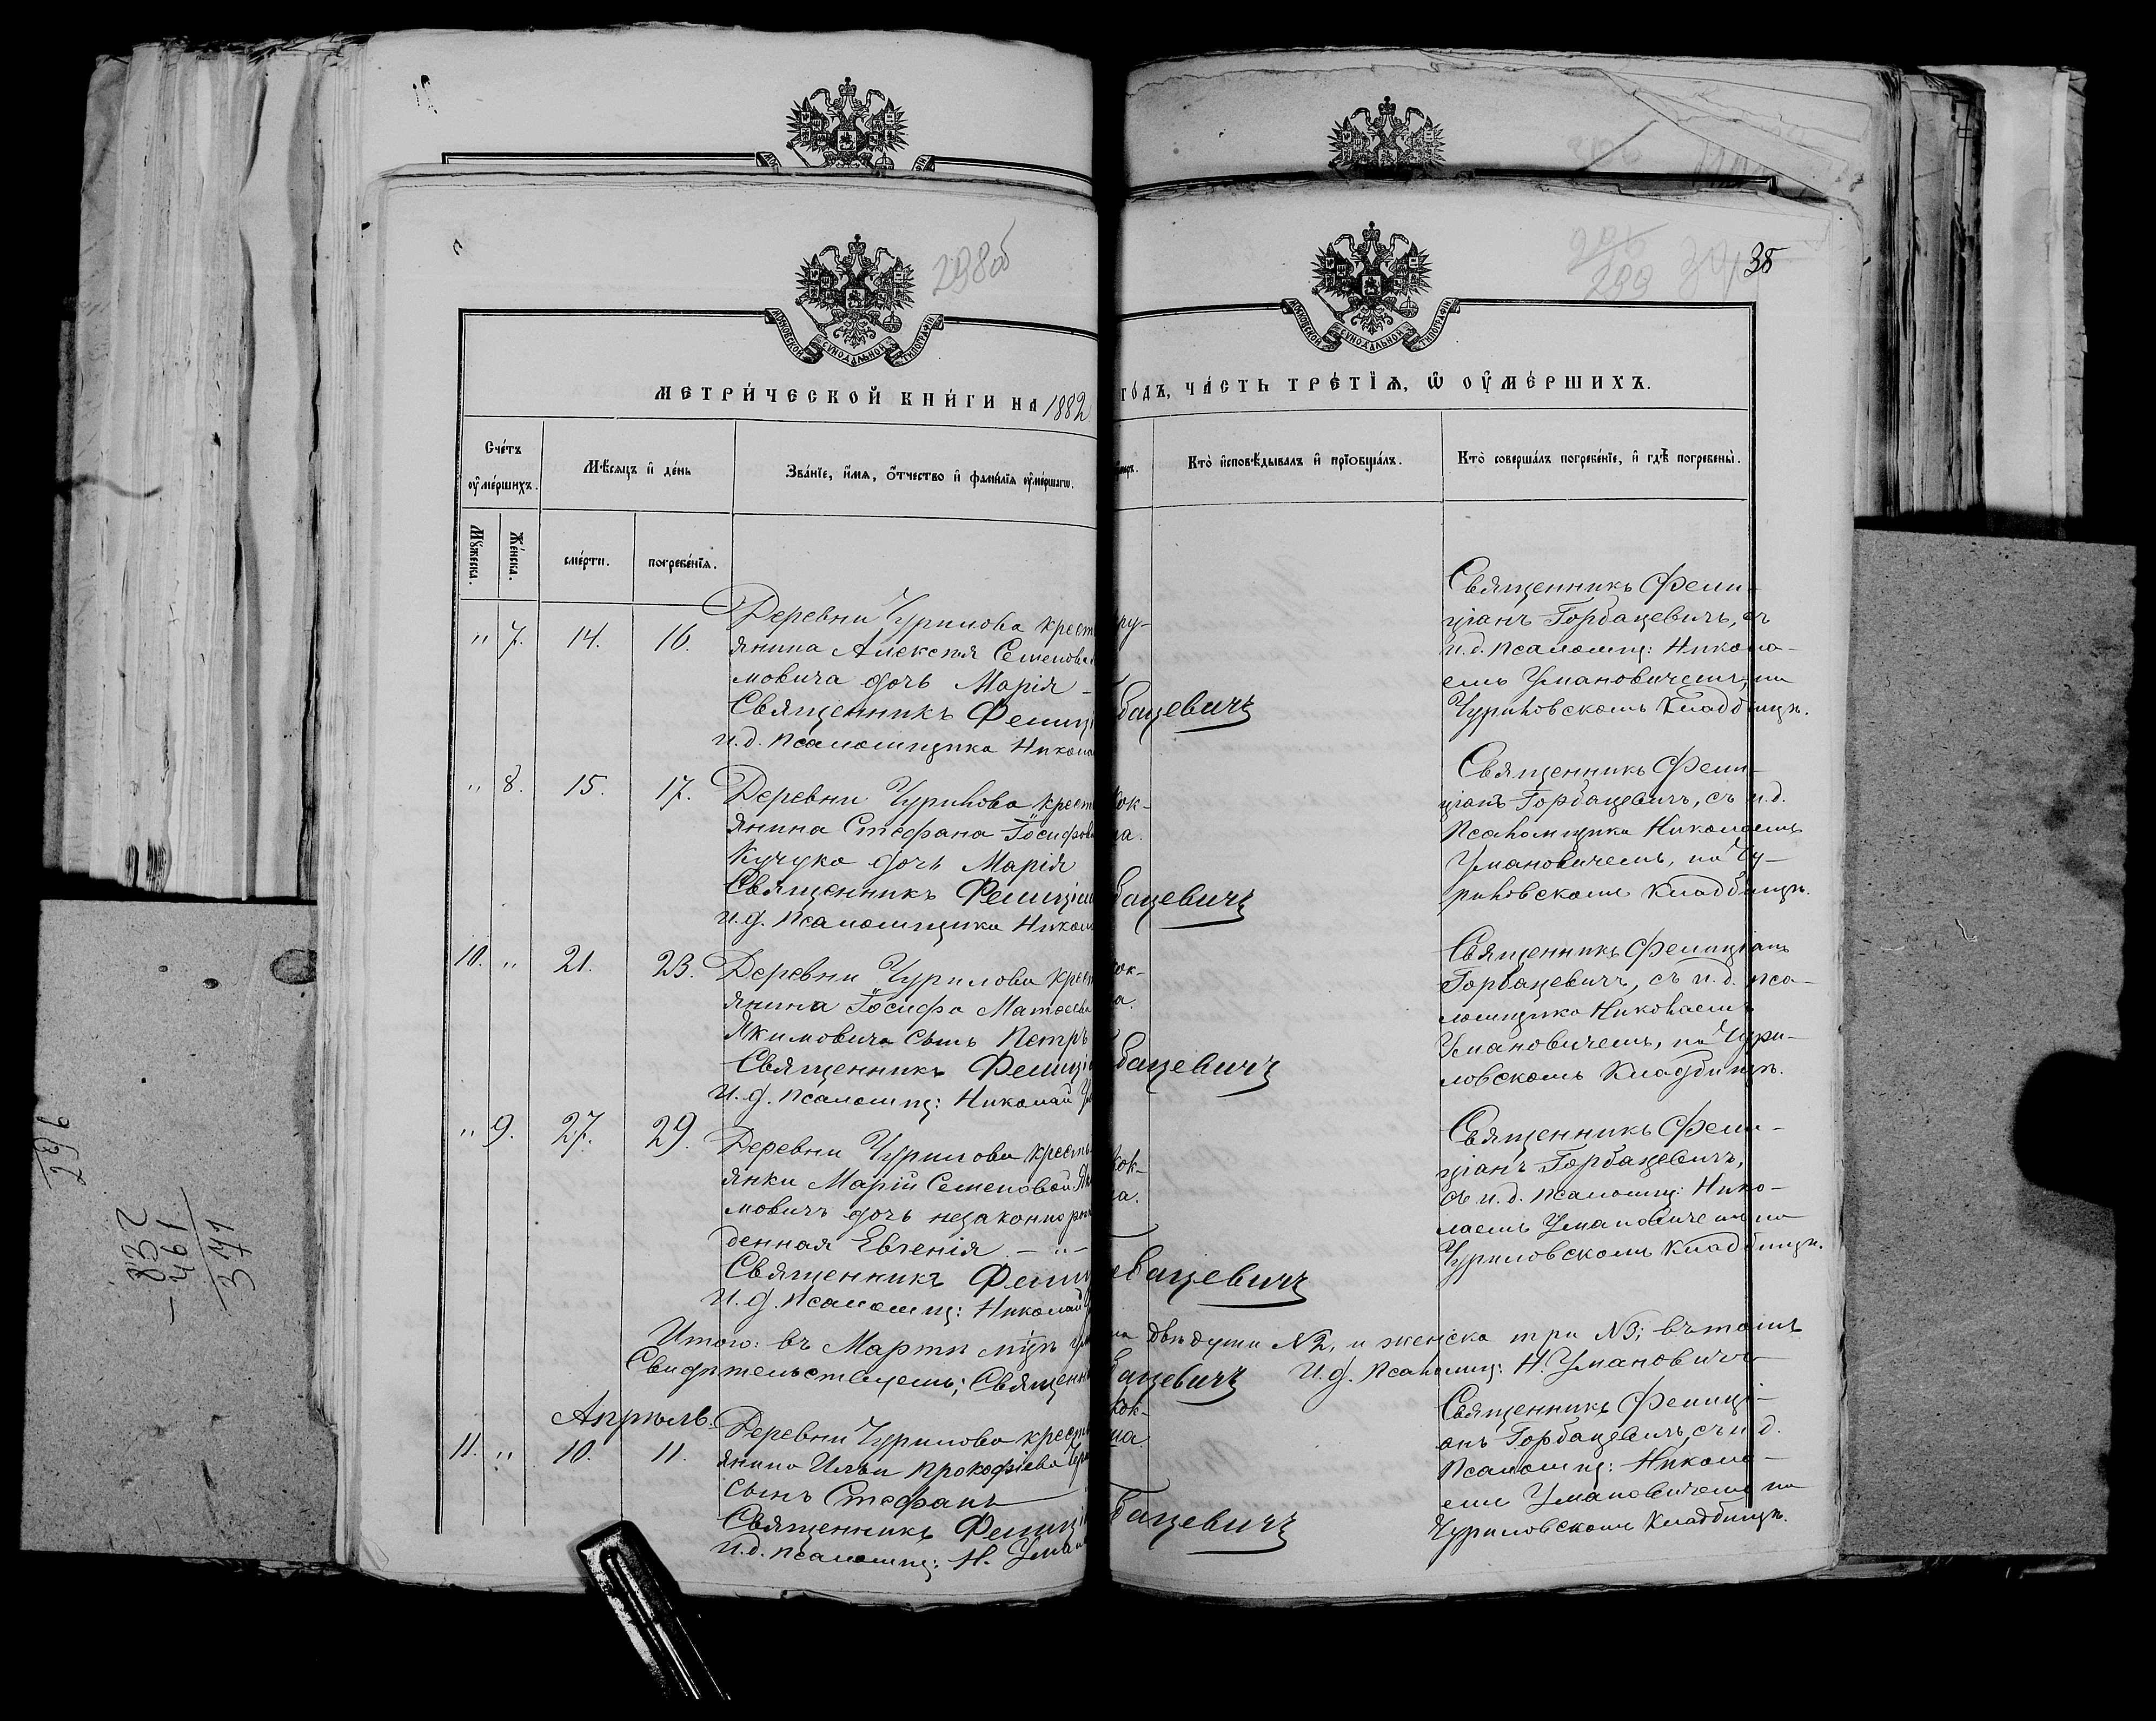 298об
299
35
МОСКОВСКОЙ СУНОДАЛЬНОЙ ТИПОГРАФІИ
МОСКОВСКОЙ СУНОДАЛЬНОЙ ТИПОГРАФІИ
МЕТРИ́ЧЕСКОЙ КНИ́ГИ НА 1882
ГО́ДЪ, ЧА́СТЬ ТРЕ́ТІѦ, Ѡ ОУМЕ́РШИХЪ.
Сче́тъ оуме́ршихъ.
Мѣсяцъ и де́нь
Зва́ніе, и́мя, о́тчество и фами́лія оуме́ршагѡ.
Кто̀ исповѣдывалъ и пріобща́лъ.
Кто̀ соверша́лъ погребе́ніе, и гдѣ погребены̀.
Му́жеска.
Же́нска.
сме́рти.
погребе́нія.
" 7. 14. 16.
Деревни Чурилова крест
янина Алексѣя Семенова
мовича дочь Марія -
Священникъ Фелиці
и.д. псаломщика Никола
ру-
бацевичъ
Священникъ Фели-
ціанъ Горбацевичъ, съ
и.д. псаломщ: Никола-
емъ Умановичемъ, на
Чуриловскомъ кладбищѣ.
" 8. 15. 17.
Деревни Чурилова крест
янина Стефана Іосифова
Кучука дочь Марія
Священникъ Фелиціан
и.д. псаломщика Никол
ок-
на.
бацевичъ
Священникъ Фели-
ціанъ Горбацевичъ, съ и.д.
псаломщика Николаемъ
Умановичемъ, на Чу-
риловскомъ кладбищѣ.
10. " 21. 23.
Деревни Чурилова крест
янина Іосифа Матѳеева
Якимовича сынъ Петръ
Священникъ Фелиці
и.д. псаломщ: Николай У
ок-
а.
бацевичъ
Священникъ Фелиціанъ
Горбацевичъ, съ и.д. пса-
ломщика Николаемъ
Умановичемъ, на Чури-
ловскомъ кладбищѣ.
" 9. 27. 29.
Деревни Чурилова кресть
янки Маріи Семеновой Яки
мовичъ дочь незаконнорож
денная Евгенія - " -
Священникъ Фелиц
и.д. псаломщ: Николай У
кок-
на.
бацевичъ
Священникъ Фели-
ціанъ Горбацевичъ,
съ и.д. псаломщ: Нико-
лаемъ Умановичемъ на
Чуриловскомъ кладбищѣ.
Итого: въ Мартѣ м-цѣ
двѣ души №2, и женска три №3; въ томъ
Свидѣтельствуемъ; Священн
бацевичъ И.д. псаломщ: Н. Умановичъ
Апрѣль.
11. " 10. 11.
Деревни Чурилова крест
янина Ильи Прокофіева
сынъ Стефанъ
Священникъ Фелиці
и.д. псаломщ: Н. Уман
кок-
на.
бацевичъ
Священникъ Фелиці-
анъ Горбацевичъ, съ и.д.
псаломщ: Никола-
емъ Умановичемъ на
Чуриловскомъ кладбищѣ.
296
832
- 461
371